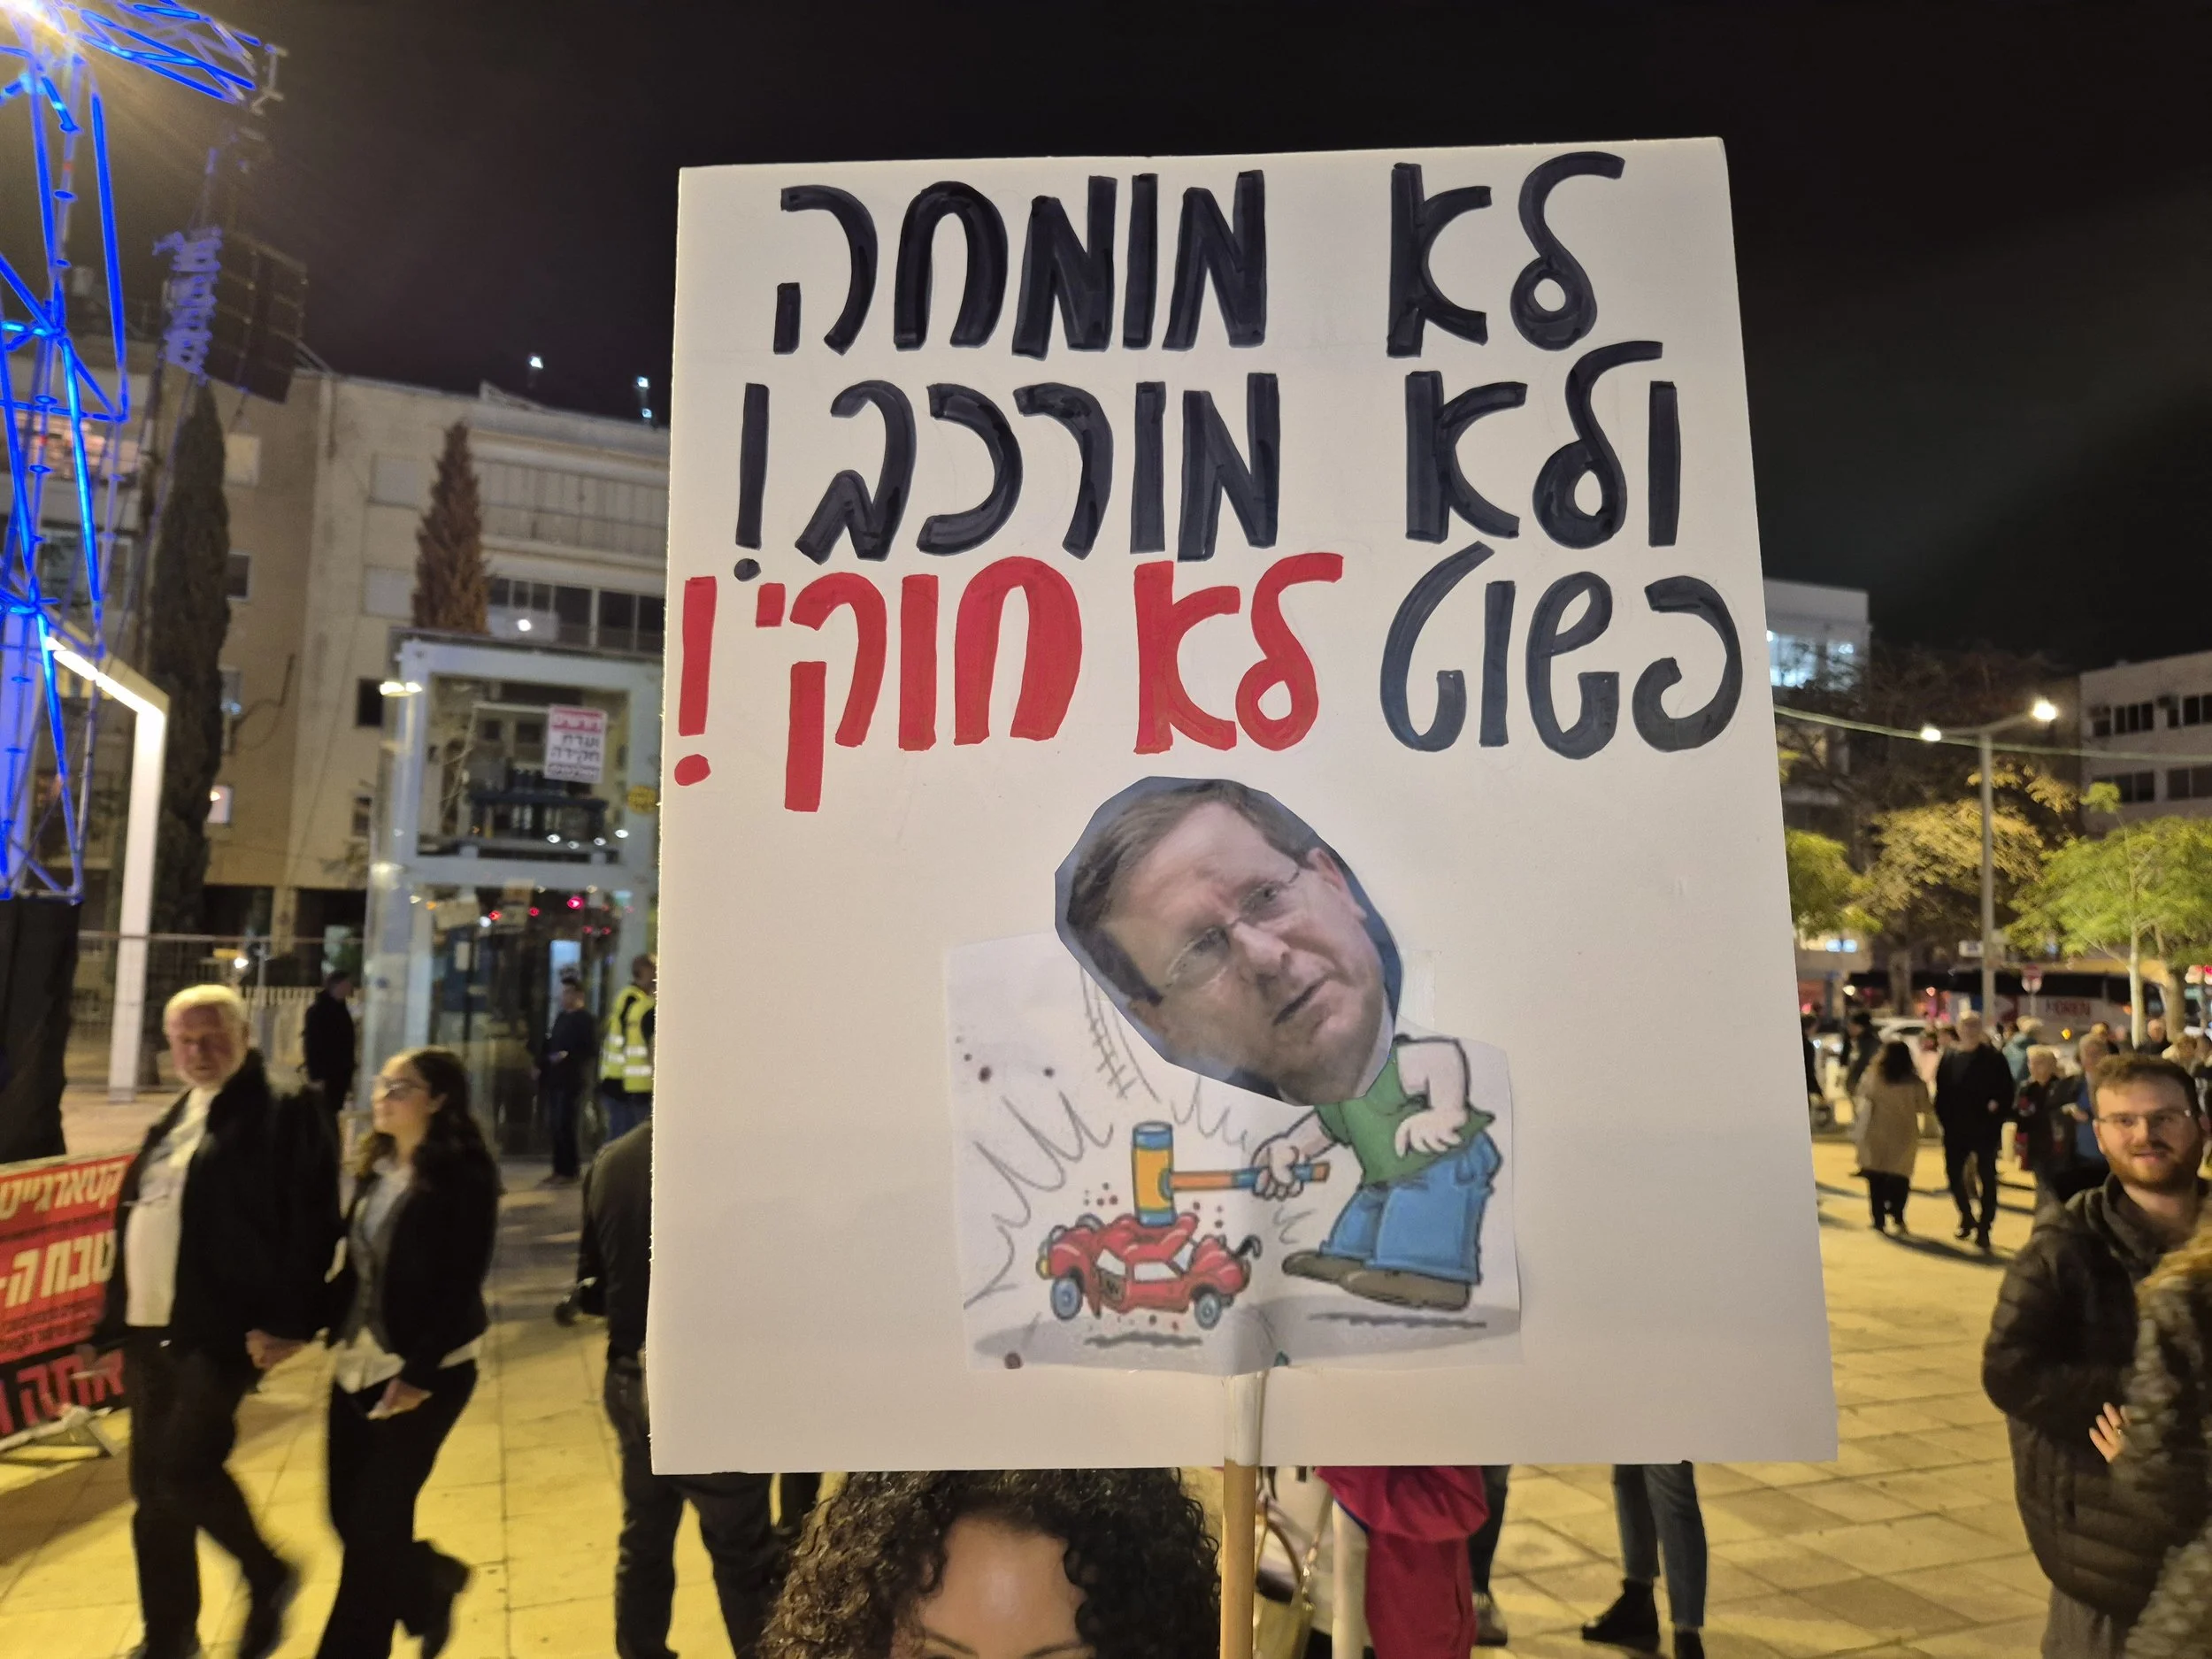 לא מומחה
ולא מורכב!
פשוט לא חוקי!
ועדת
חקירה
קטארגייט
טבח ה-
אתה